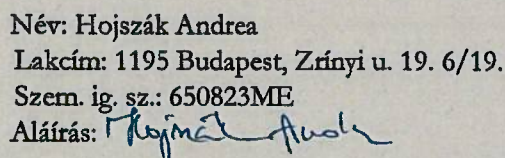 Név: Hojszák Andrea
Lakcím: 1195 Budapest, Zrínyi u. 19. 6/19.
Szem. ig. sz.: 650823ME
Aláírás: Hojszák Andrea